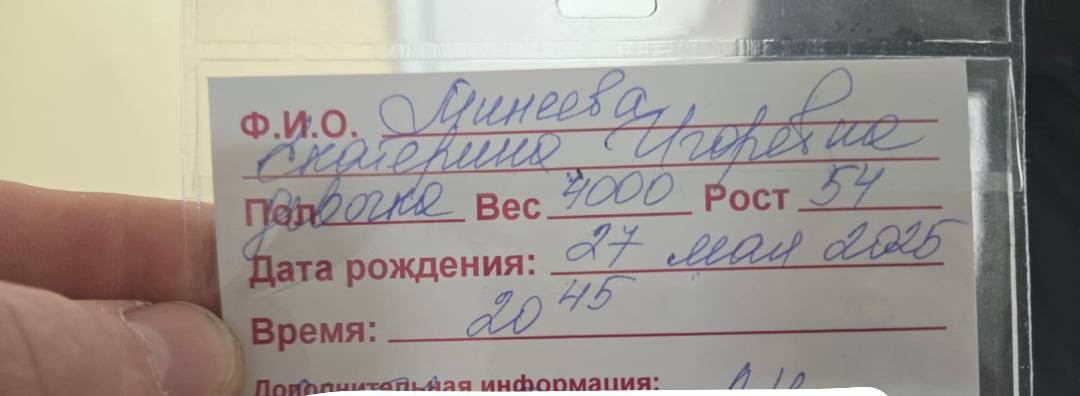 Ф.И.О. Минеева
Екатерина Игоревна
Пол девочка Вес 4000 Рост 54
Дата рождения: 27 мая 2025
Время: 20 45
Дополнительная информация: